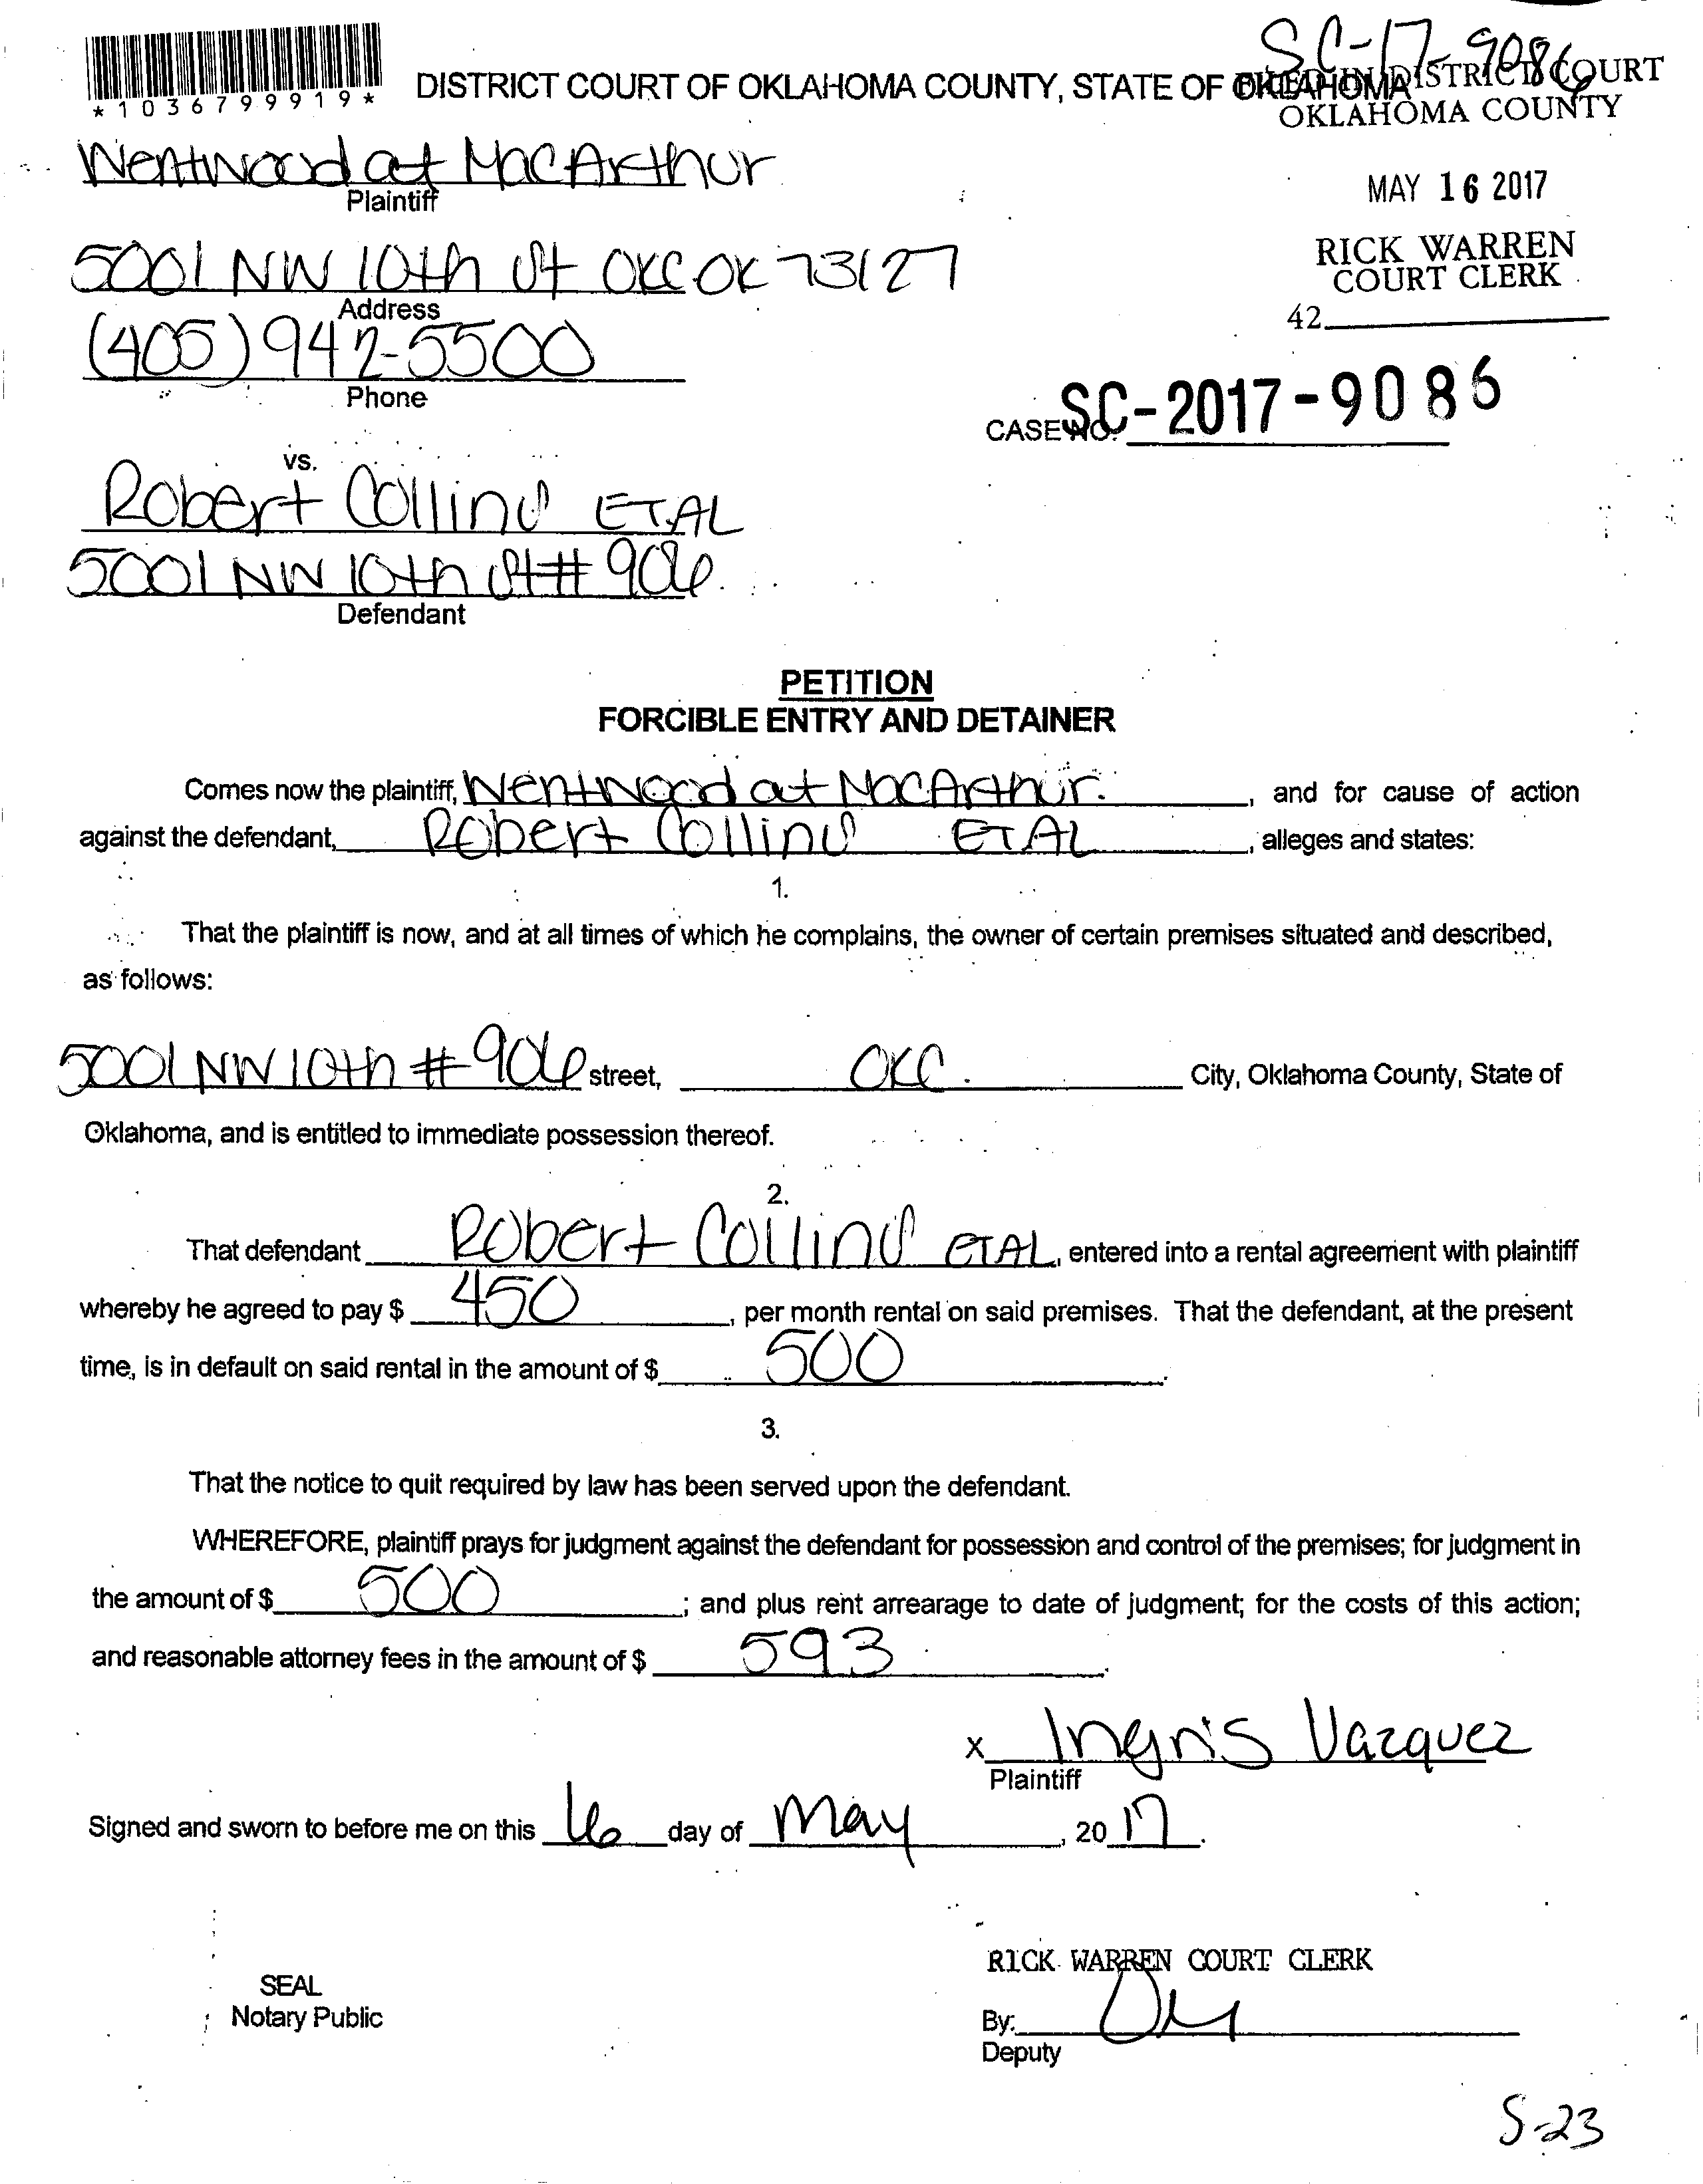 SC-17-9086
*1036799919*
DISTRICT COURT OF OKLAHOMA COUNTY, STATE OF OKLAHOMA
FILED IN DISTRICT COURT
OKLAHOMA COUNTY
Wentwood at MacArthur
Plaintiff
MAY 16 2017
5001 NW 10th St OKC OK 73127
Address
RICK WARREN
COURT CLERK
42
(405) 942-5500
Phone
CASE NO. SC-2017-9086
vs.
Robert Collins ETAL
5001 NW 10th St # 906
Defendant
PETITION
FORCIBLE ENTRY AND DETAINER
Comes now the plaintiff, Wentwood at MacArthur, and for cause of action
against the defendant, Robert Collins ETAL, alleges and states:
1.
That the plaintiff is now, and at all times of which he complains, the owner of certain premises situated and described,
as follows:
5001 NW 10th # 906 street, OKC. City, Oklahoma County, State of
Oklahoma, and is entitled to immediate possession thereof.
2.
That defendant Robert Collins ETAL, entered into a rental agreement with plaintiff
whereby he agreed to pay $ 450, per month rental on said premises. That the defendant, at the present
time, is in default on said rental in the amount of $ 500.
3.
That the notice to quit required by law has been served upon the defendant.
WHEREFORE, plaintiff prays for judgment against the defendant for possession and control of the premises; for judgment in
the amount of $ 500; and plus rent arrearage to date of judgment; for the costs of this action;
and reasonable attorney fees in the amount of $ 593.
X Ingris Vazquez
Plaintiff
Signed and sworn to before me on this 16 day of May, 2017.
RICK WARREN COURT CLERK
SEAL
Notary Public
By:
Deputy
5-23